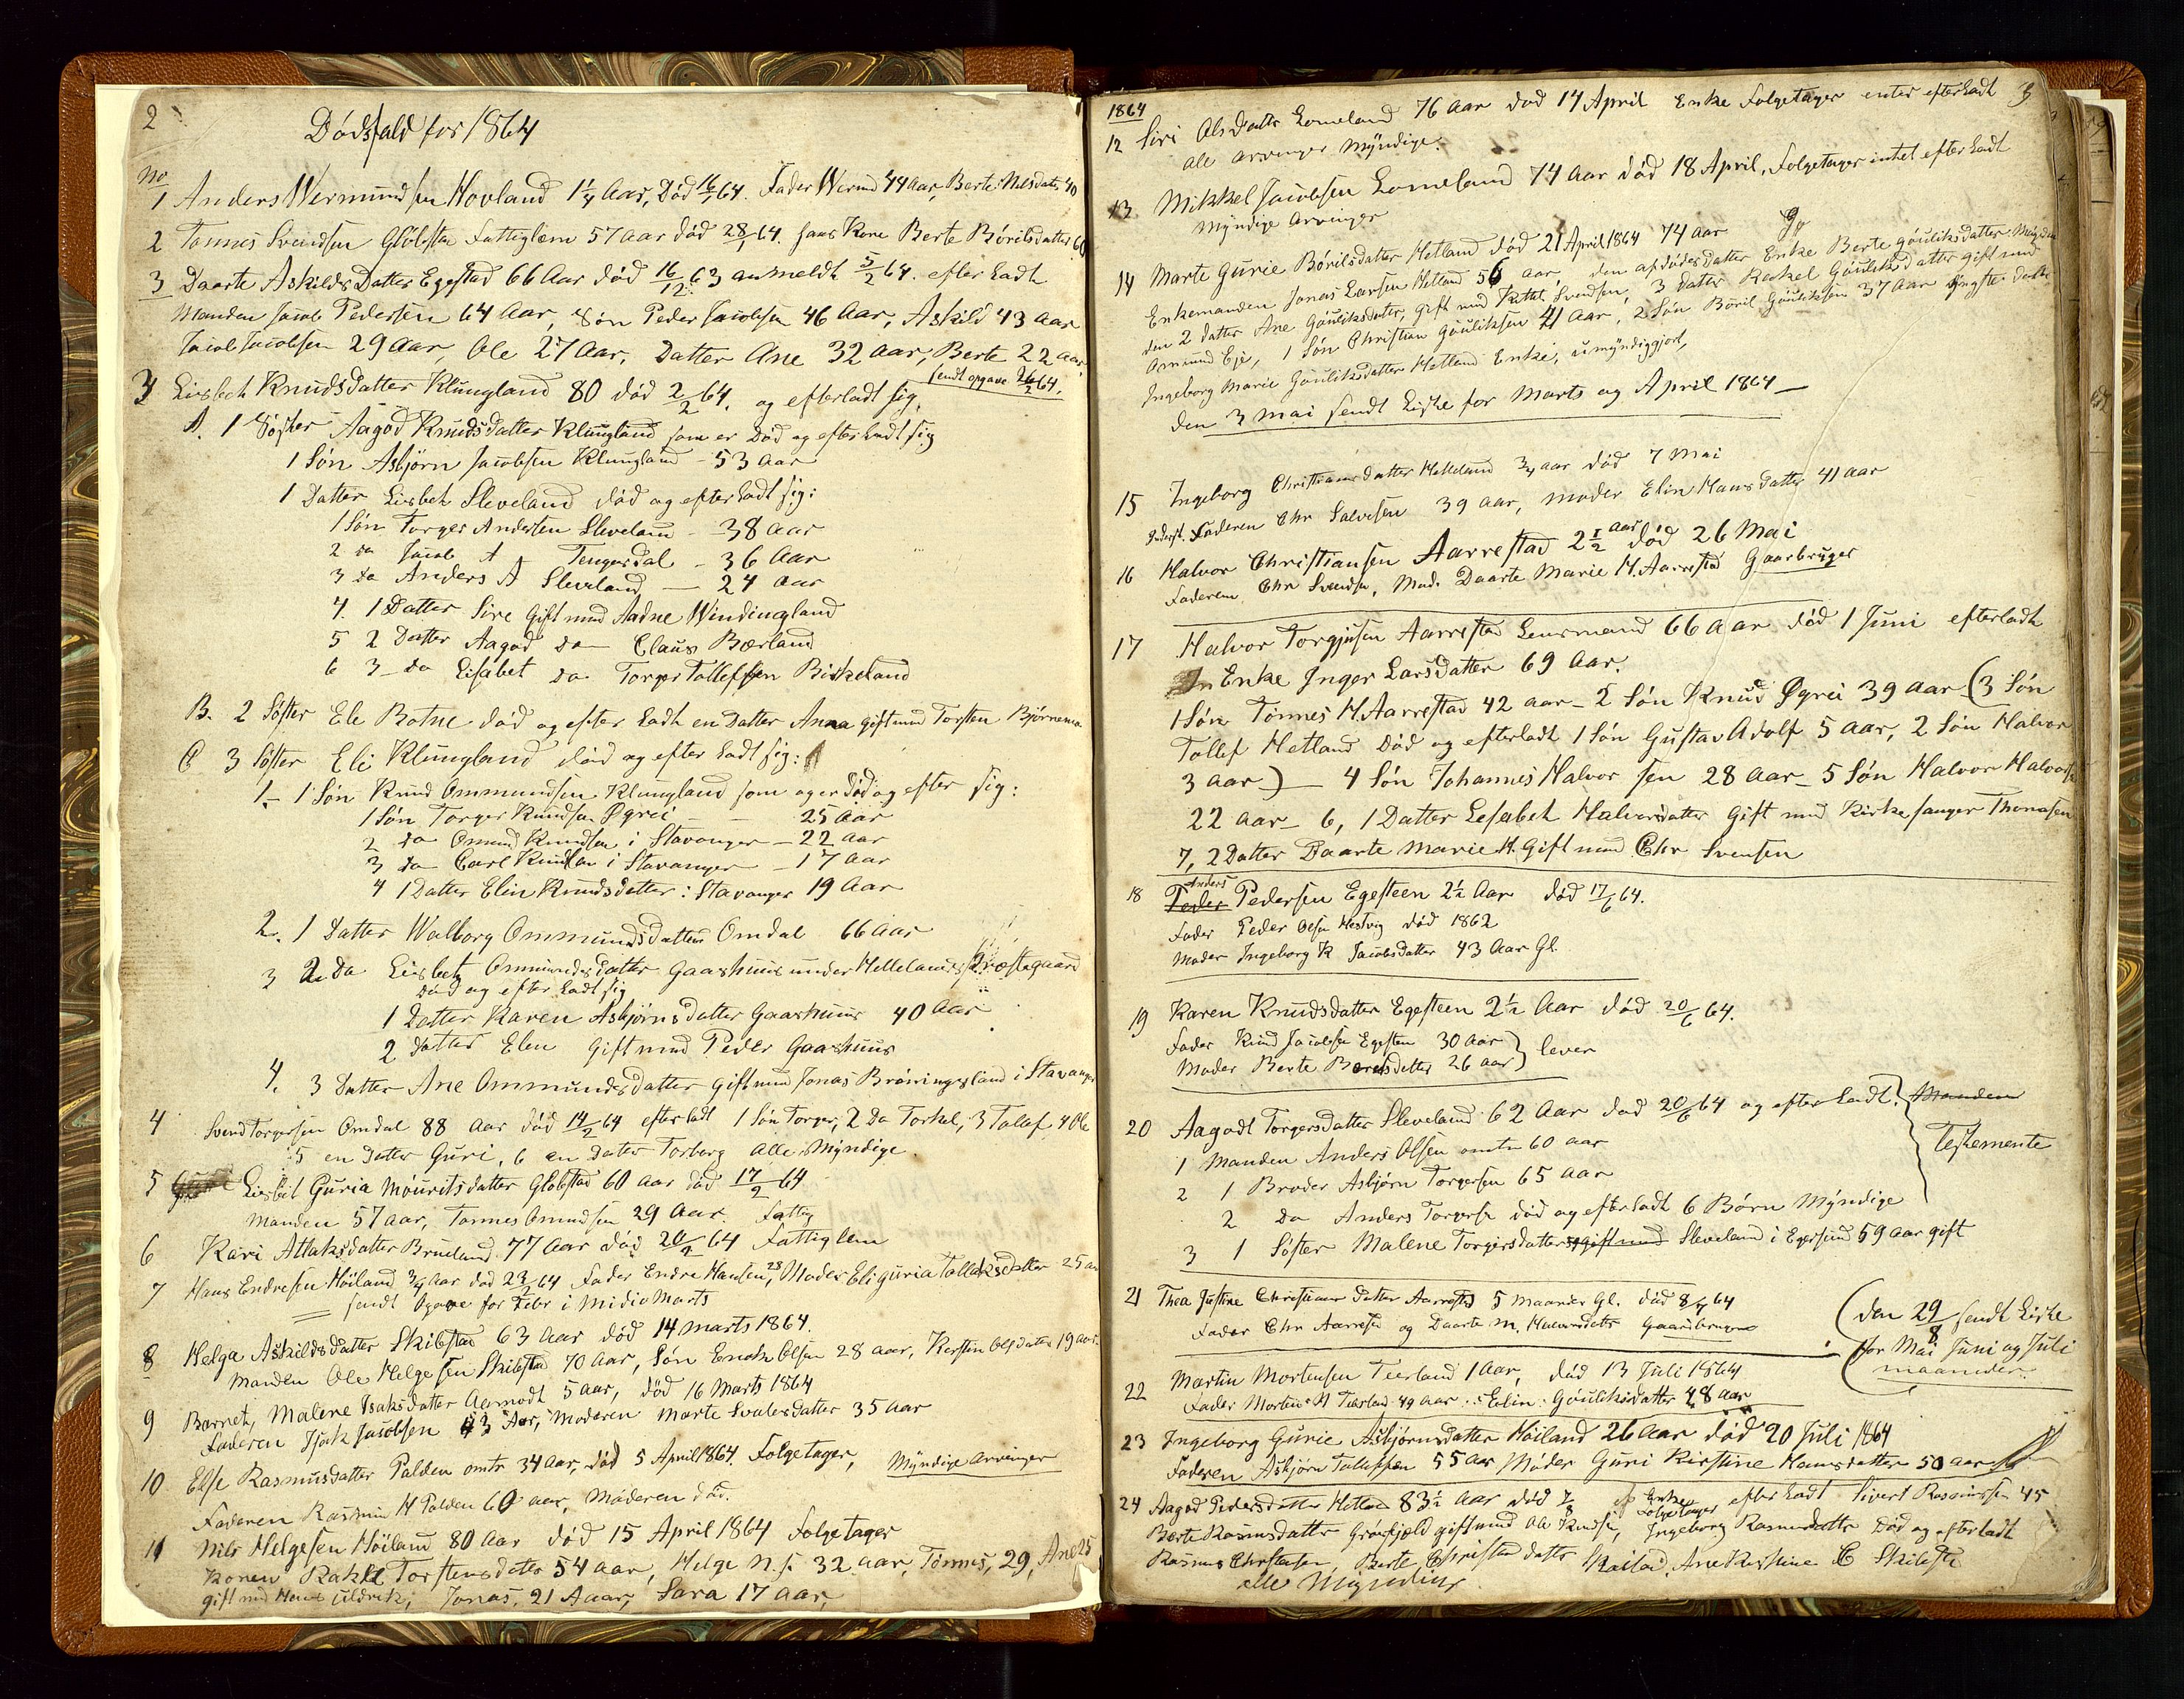 2
Dödsfald for 1864
No
1 Anders Wermundsen Hovland 1 1/4 Aar, Död 16/1 64. Fader Wermd 44 Aar, Berte Nilsdatr. 40
2 Tønnes Svendsen Glöbstad Fattiglem 57 Aar död 28/1 64. hans Kone Berte Bórilsdatter 60
3 Daarte Askilds Datter Egestad 66 Aar död 16/12 63 anmeldt 5/2 64. efterladt
Manden Jacob Pedersen 64 Aar, Sön Peder Jacobsen 46 Aar, Askild 43 Aar
Jacob Jacobsen 29 Aar, Ole 27 Aar, Datter Ane 32 Aar, Berte 22 aar
sendt opgave 26/2 64.
3 Lisbeth Knudsdatter Klungland 80 död 2/2 64. og efterladt sig,
A. 1 Søster Aagod Knudsdatter Klungland som er död og efterladt sig
1 Sön Asbjörn Jacobsen Klungland - 53 aar
1 Datter Lisbeth Sleveland död og efterladt sig:
1 Sön Torger Andersen Sleveland - 38 aar
2 do Jacob A Tengesdal - 36 Aar
3 do Anders A Sleveland - 24 aar
4. 1 Datter Sire Gift med Aadne Windingland
5 2 Datter Aagod do Claus Bærland
6 3 do Lisabet do Torger Tollefsen Birkeland
B. 2 Søster Ele Botne död og efterladt en Datter Anna gift med Torsten Bjørnemo
C 3 Søster Eli Klungland död og efterladt sig:
1. 1 Sön Knud Ommundsen Klungland som og er Död og efter sig:
1 Sön Torger Knudsen Øgrei - 25 aar
2 do Omund Knudsen i Stavanger - 22 aar
3 do Carl Knudsen i Stavanger - 17 aar
4 1 Datter Elin Knudsdatter i Stavanger 19 Aar
2. 1 Datter Walborg Ommundsdatter Omdal 66 aar
3 2 Do Lisbeth Ommundsdatter Gaashuus under Hellelands Præstegaard
död og efterladt sig
1 Datter Karen Asbjörnsdatter Gaashuus 40 aar
2 Datter Elen Gift med Peder Gaashuus
4. 3 Datter Ane Ommundsdatter gift med Jonas Bröningsland i Stavanger
4 Svend Torgersen Omdal 88 aar död 14/2 64 efterladt 1 Sön Torger, 2 Do Torkel, 3 Tollef, 4 Ole
5 en Datter Guri, 6 en Datter Torborg alle Myndige.
5 Lisbet Guria Móuritsdatter Glöbstad 60 aar död 17/2 64
Manden 57 aar, Tønnes Omundsen 29 Aar. Fattig
6 Kari Atlaksdatter Brueland 77 Aar död 20/2 64 Fattiglem
7 Hans Endresen Höiland 3/4 Aar död 23/2 64 Fader Endre Hansen 28, Moder Eli Guria Tollaksdatter 25 aar
sendt Opgave for Febr i Midio Marts
8 Helga Askildsdatter Skibstad 63 Aar död 14 marts 1864.
Manden Ole Helgesen Skibstad 70 Aar, Sön Enok Olsen 28 aar, Kerstin Olsdatter 19 aar.
9 Barnet, Malene Isaksdatter Aamodt 5 aar, död 16 Marts 1864
Faderen Isak Jacobsen 43 Aar, Moderen Marte Svalesdatter 35 aar
10 Else Rasmusdatter Palden omtr 34 aar, död 5 April 1864. Folgetager, Myndige Arvinger
Faderen Rasmus H Palden 60 aar, Móderen död.
11 Nils Helgesen Höiland 80 aar död 15 April 1864 Folgetager
Konen Rakel Torstensdatter 54 aar, Helge N. s. 32 aar, Tönnes, 29, Ane 25
gift med Hans Uldrik, Jonas, 21 Aaar, Sara 17 aar,
1864
3
12 Siri Olsdatter Lomeland 76 aar död 14 April Enke Folgetager entet efterladt
alle Arvinger Myndige.
13 Mikkel Jacobsen Lomeland 74 aar död 18 April, Folgetager intet efterladt
Myndige Arvinger
14 Marte Gurie Börilsdatter Hetland död 21 April 1864 74 aar
Enkemanden Jonas Larsen Hetland 56 aar den afdödes datter Enke Berte Góuliksdatter
den 2 datter Ane Góuliksdatter, gift med Kittel Svendsen, 3 datter Rakel Góuliksdatter gift med
Omund Eje, 1 Sön Christian Góuliksen 41 aar, 2 Sön Böril Góuliksen 37 aar yngste datter
Ingeborg Marie Góuliksdatter Hetland Enke, umyndiggjort,
den 3 mai sendt Liste for Marts og April 1864 —
15 Ingeborg Christiansdatter Helleland 3/4 aar död 7 Mai
Faderen Chr Salvesen 39 aar, moder Elin Hansdatter 41 aar
16 Halvor Christiansen Aarrestad 2 1/2 aar död 26 Mai
Faderen Chr Svendsen, Mod. Daarte Marie H. Aarrestad Gaarbruger
17 Halvor Torgjusen Aarrestad Lensmand 66 aar död 1 Juni efterladt
En Enke Inger Larsdatter 69 Aar.
1 Sön Tönnes H. Aarrestad 42 aar - 2 Sön Knud Øgrei 39 aar - (3 Sön
Tollef Hetland död og efterladt 1 Sön Gustav Adolf 5 aar, 2 Sön Halvor
3 aar) - 4 Sön Johannes Halvorsen 28 aar - 5 Sön Halvor Halvorsen
22 aar - 6, 1 Datter Lesabeth Halvorsdatter gift med Kirkesanger Thomasen
7, 2 Datter Daarte Marie H. Gift med Chr Svensen
18 Peder Anders Pedersen Egesteen 2 1/2 Aar död 17/6 64.
Fader Peder Olsen Hestvig död 1862
Moder Ingeborg K Jacobsdatter 43 Aar Gl.
19 Karen Knudsdatter Egesteen 2 1/2 Aar död 20/6 64.
Fader Knud Jacobsen Egesten 30 aar
Moder Berte Borelsdatter 26 aar } lever
20 Aagodt Torgersdatter Sleveland 62 Aar död 20/6 64 og efterladt: Manden
Testemente
1 Manden Anders Olsen omtr 60 aar
2 1 Broder Asbjørn Torgersen 65 aar
2 do Anders Torgersen død og efterladt 6 Børn Myndige
3 1 Søster Malene Torgersdatter gift med Sleveland i Egersund 59 aar gift
21 Thea Justine Christiansdatter Aarrestad 5 maaneder Gl. död 8/7 64
Fader Chr Aarrestad og Daarte M. Halvorsdatter Gaardbrugere
(den 29/8 sendt Liste
for Mai Juni og Juli
maaneder.
22 Martin Mortensen Teerland 1 Aar, död 13 Juli 1864
Fader Morten H Teerland 49 aar Elin Góuliksdatter 48 aar
23 Ingeborg Gurie Asbjørnsdatter Höiland 26 aar død 20 Juli 1864
Faderen Asbjørn Tollefsen 55 aar Moder Guri Kirstine Hansdatter 50 aar
24 Aagod Pedersdatter Hetland 83 1/2 aar död Enke Folgetager efterladt Sivert Rasmussen 45
Berte Rasmusdatter Grøsfjeld gift med Ole Knudsen, Ingeborg Rasmusdatter død og efterladt
Rasmus Christensen, Berte Christensdatter Skailad, Ane Kirstine C Skibstad
alle Myndige